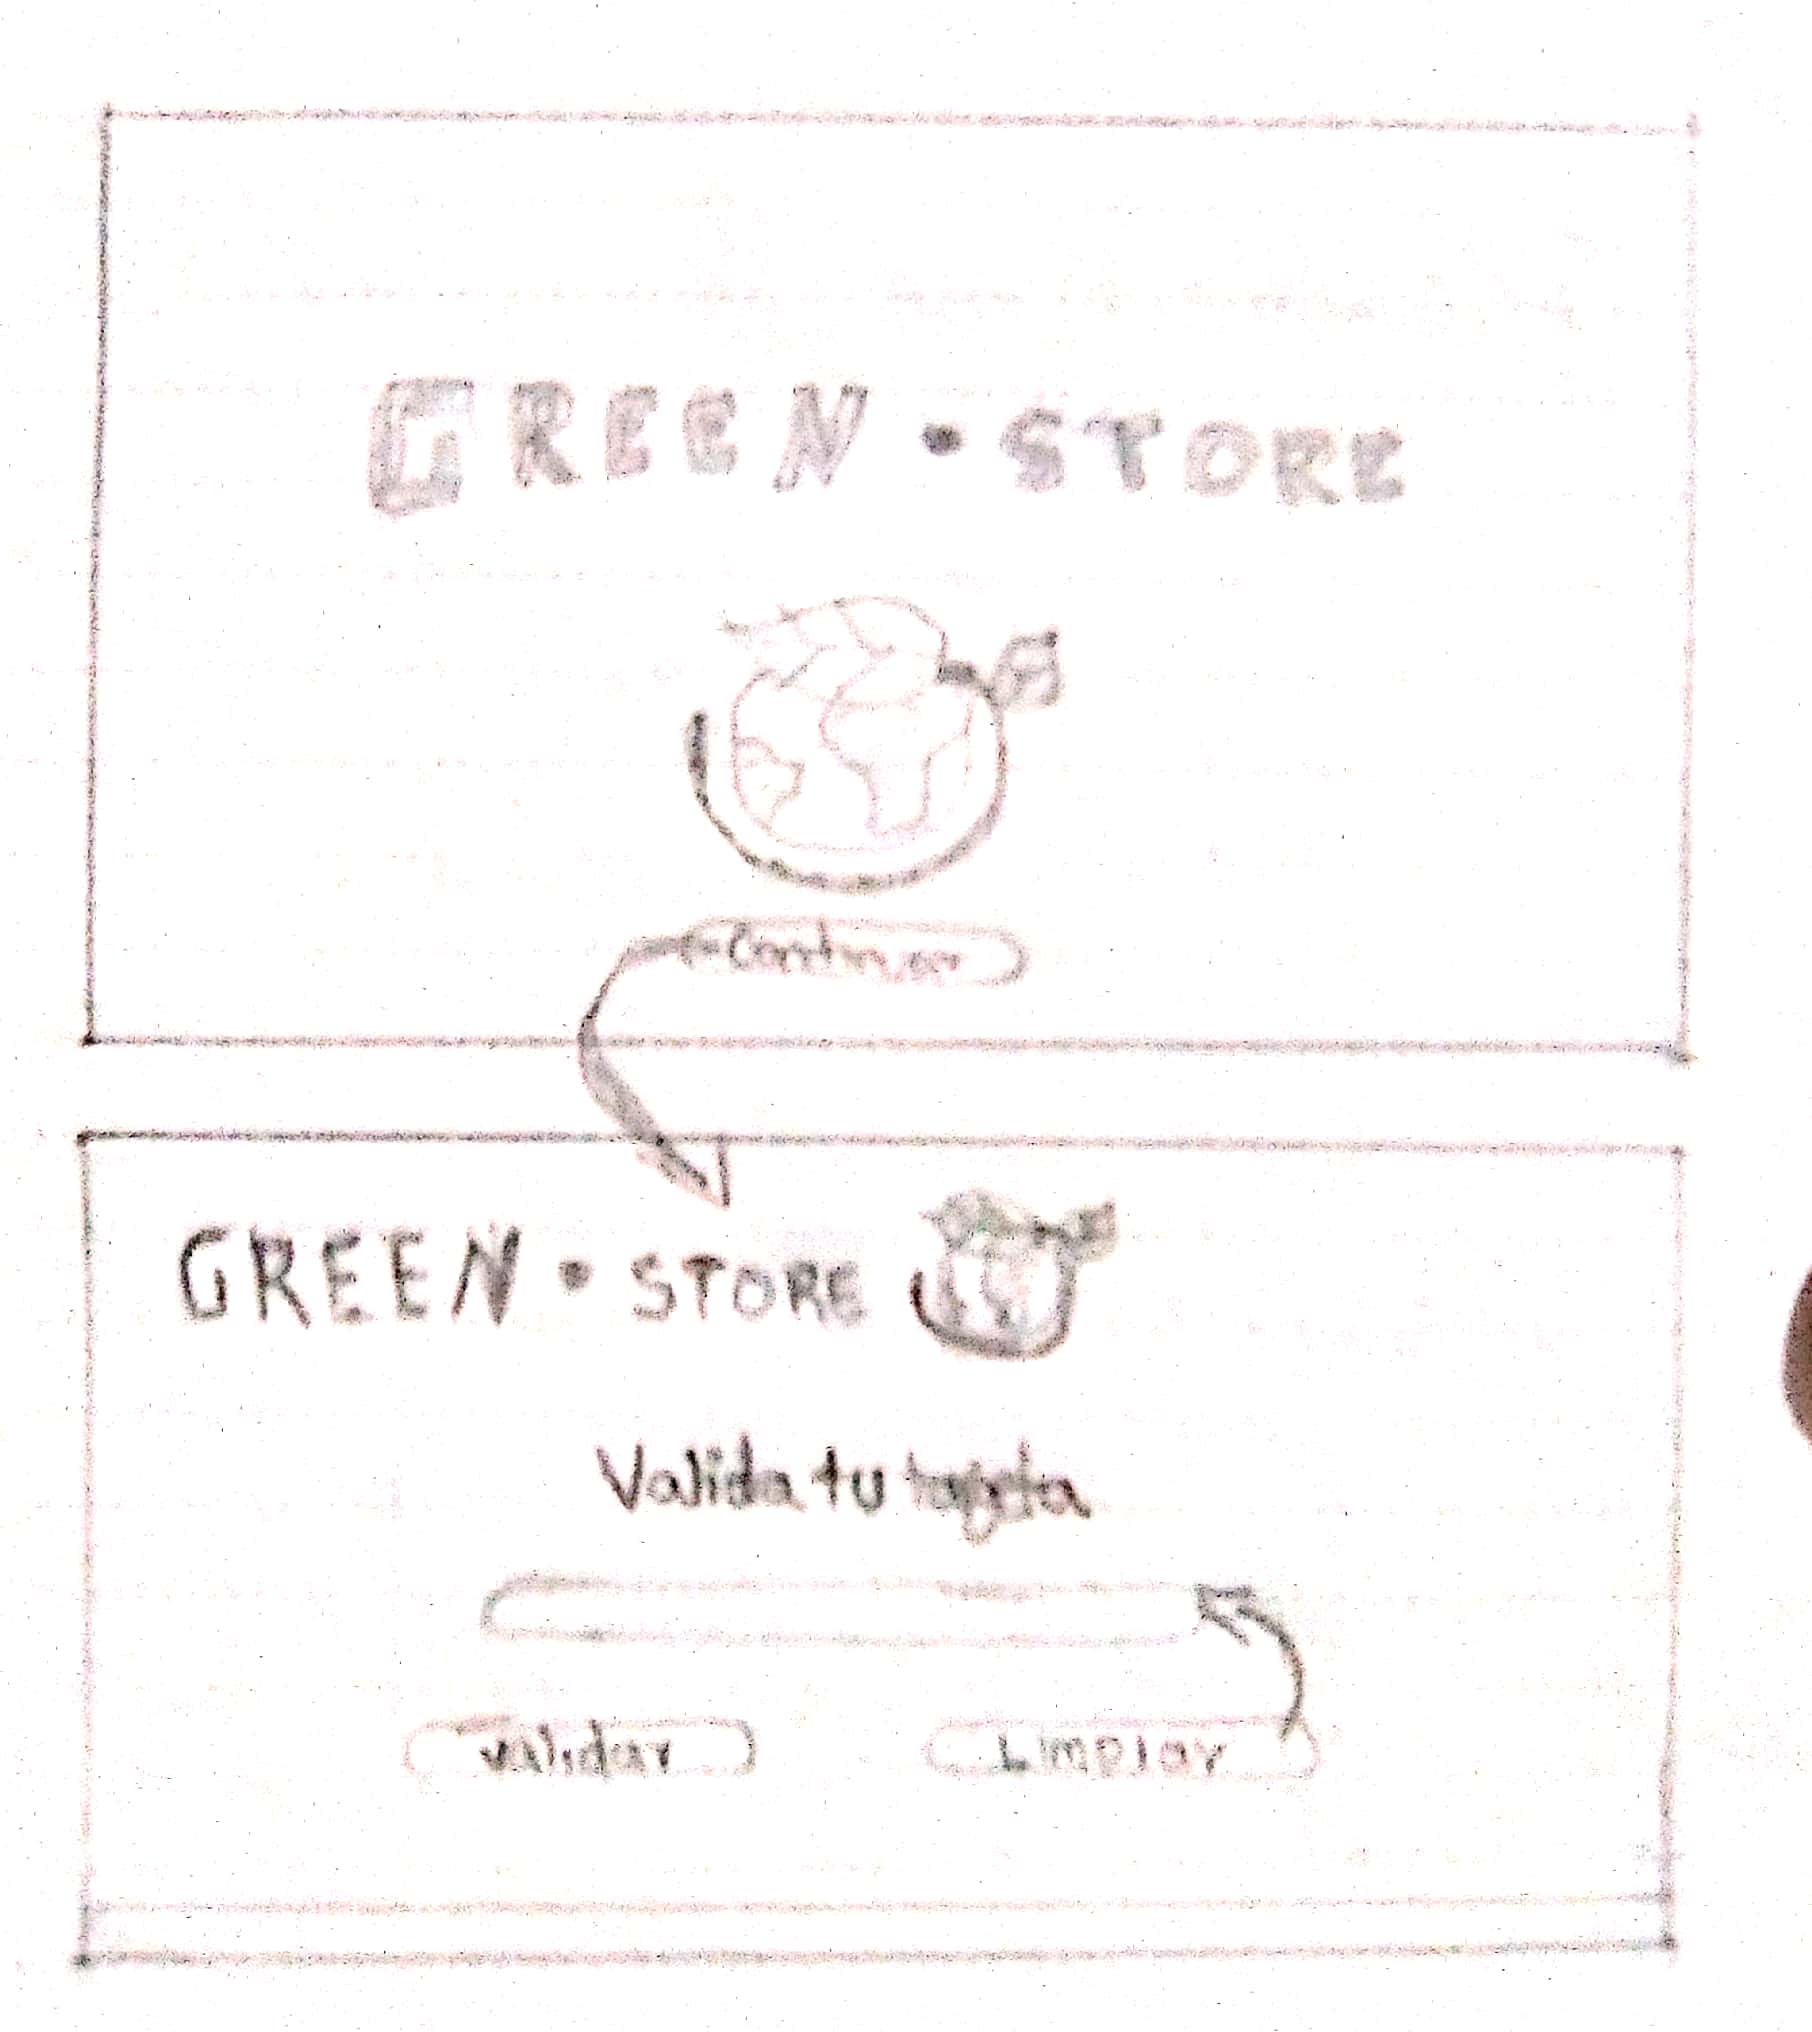 GREEN • STORE
Continuar
GREEN • STORE
Valida tu tarjeta
Validar
Limpiar